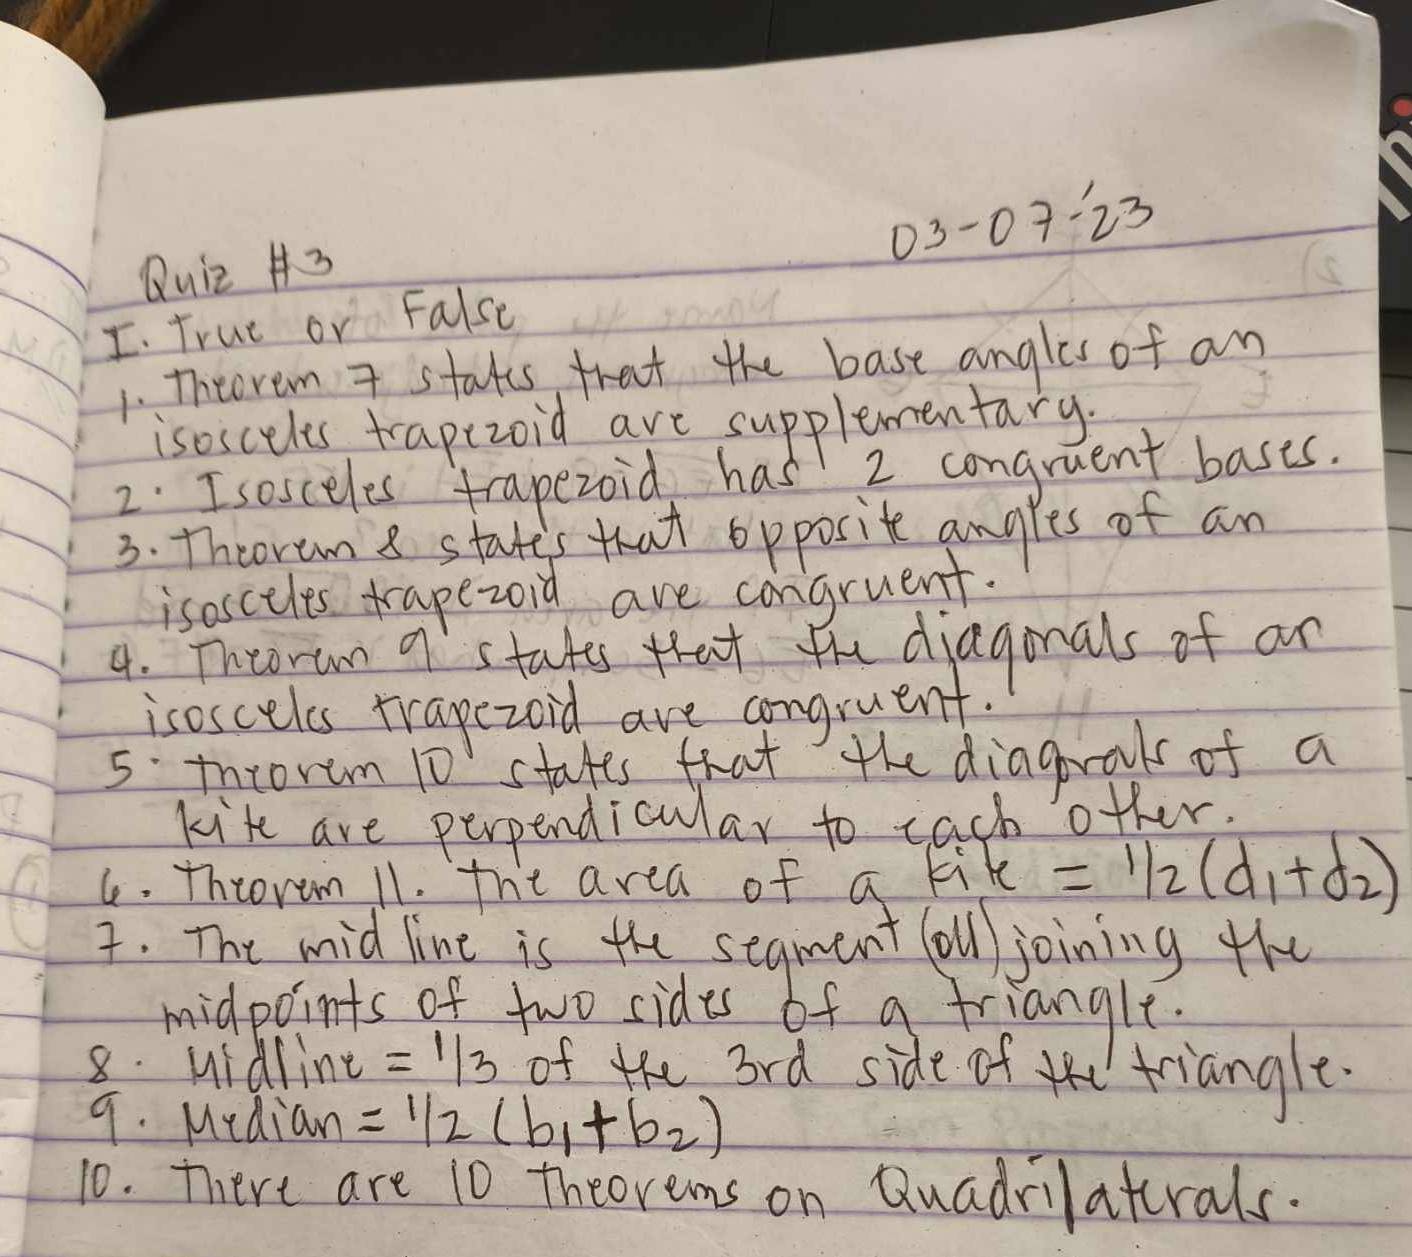 03-07-'23
Quiz #3
I. True or False
1. Theorem 7 states that the base angles of an
isosceles trapezoid are supplementary.
2. Isosceles trapezoid has 2 congruent bases.
3. Theorem 8 states that opposite angles of an
isosceles trapezoid are congruent.
4. Theorem 9 states that the diagonals of an
isosceles trapezoid are congruent.
5. Theorem 10 states that the diagonals of a
kite are perpendicular to each other.
6. Theorem 11. The area of a kite = 1/2 (d₁+d₂)
7. The midline is the segment joining the
midpoints of two sides of a triangle.
8. Midline = 1/3 of the 3rd side of the triangle.
9. Median = 1/2 (b₁+b₂)
10. There are 10 Theorems on Quadrilaterals.